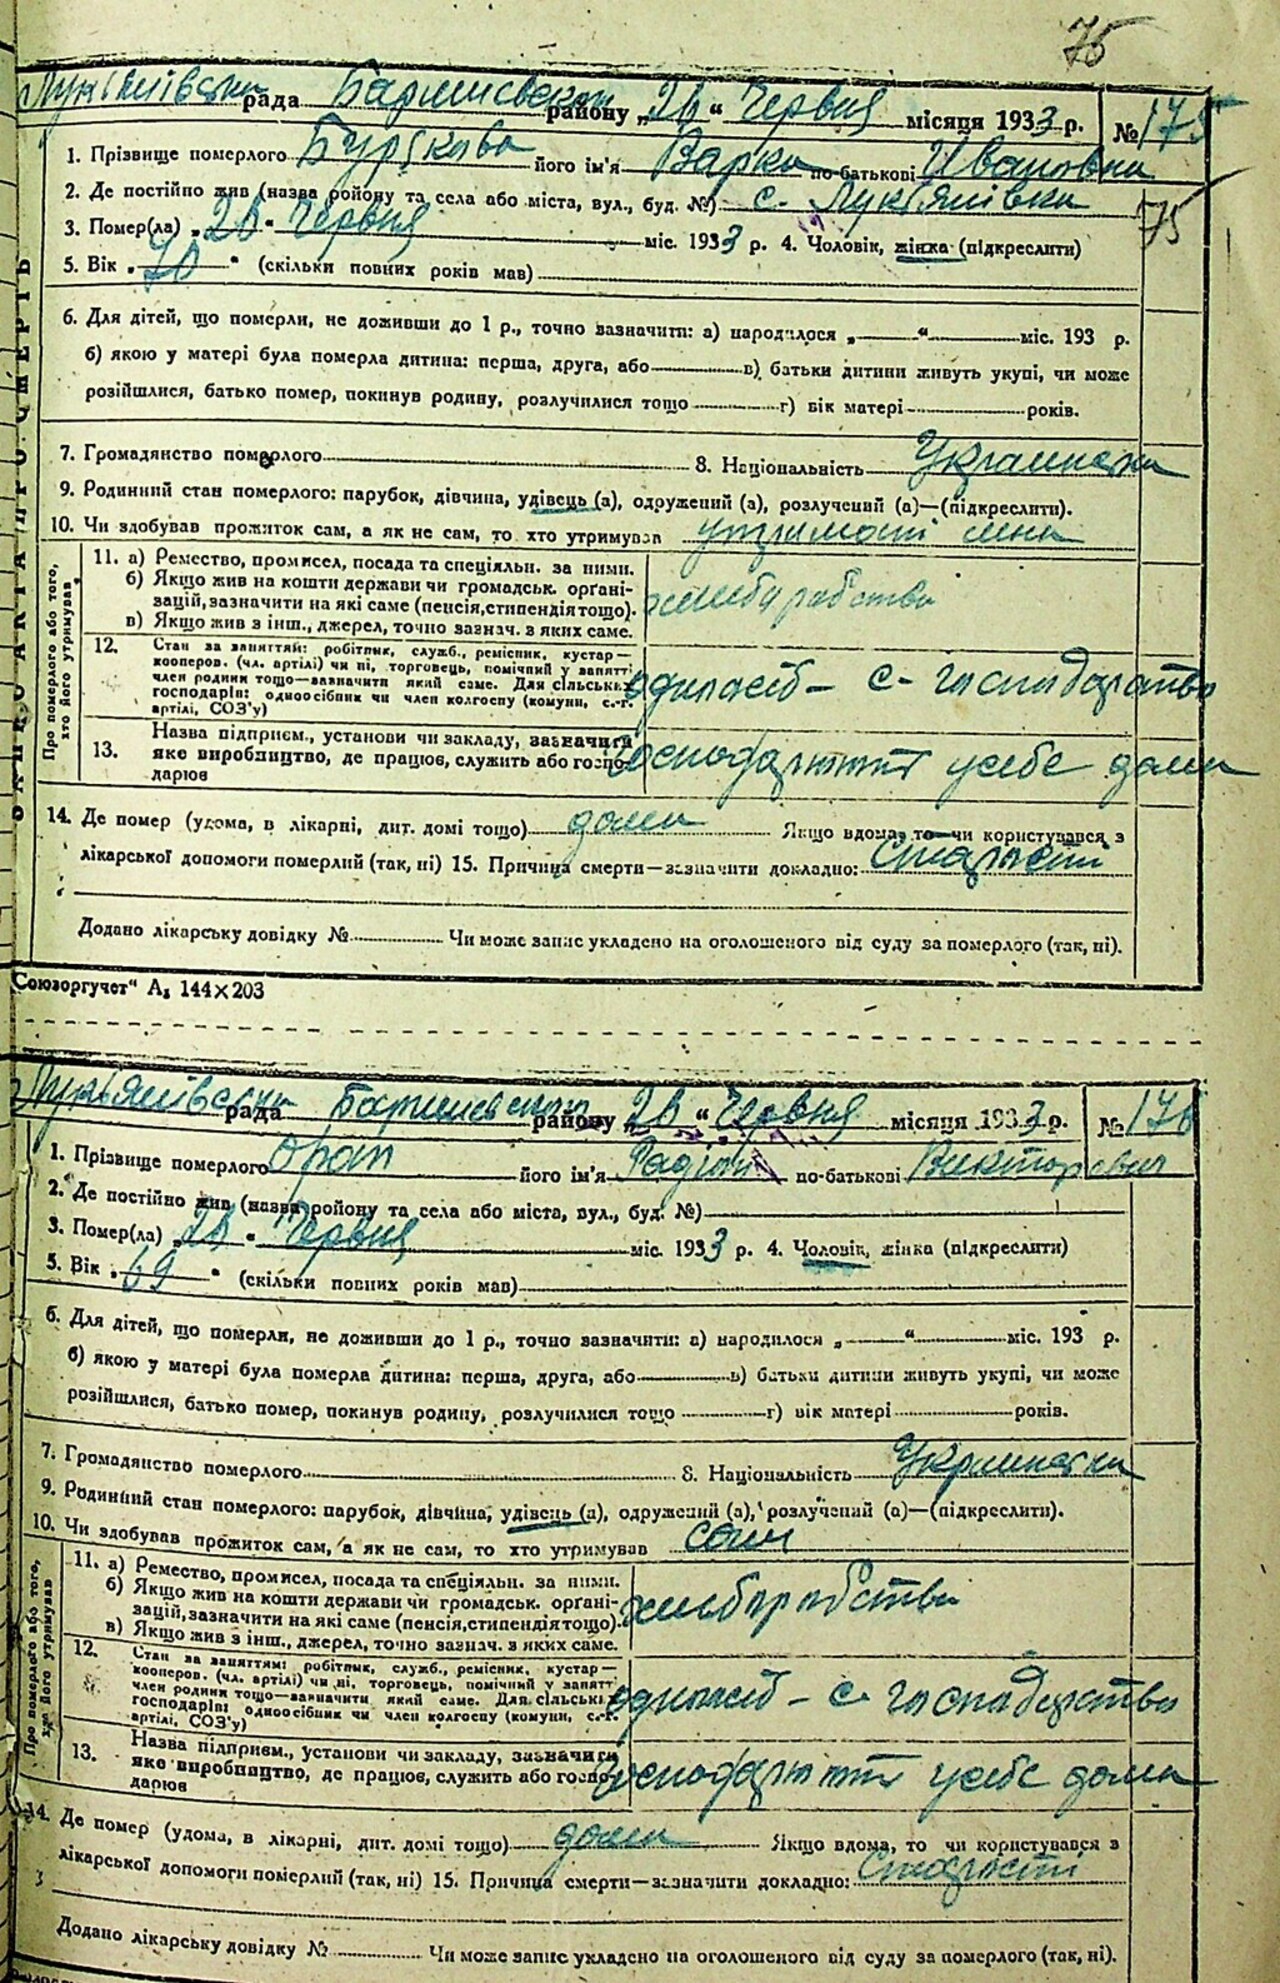 76
Лукьянівська рада Баришевськом району „26“ Червня місяця 1933 р. № 175
1. Прізвище померлого його ім'я Варка по-батькові Ивановна
2. Де постійно жив (назва району та села або міста, вул., буд. №) с. Лукьянівка
75
3. Помер(ла) „26“ Червня міс. 1933 р. 4. Чоловік, жінка (підкреслити)
5. Вік „70“ (скільки повних років мав)
6. Для дітей, що померли, не доживши до 1 р., точно зазначити: а) народилося „ “ міс. 193 р.
б) якою у матері була померла дитина: перша, друга, або в) батьки дитини живуть укупі, чи може
розійшлися, батько помер, покинув родину, розлучилися тощо г) вік матері років.
7. Громадянство померлого 8. Національність Украинська
9. Родинний стан померлого: парубок, дівчина, удівець (а), одружений (а), розлучений (а)—(підкреслити).
10. Чи здобував прожиток сам, а як не сам, то хто утримував
Про померлого або того, хто його утримував
11. а) Ремество, промисел, посада та спеціяльн. за ними.
б) Якщо жив на кошти держави чи громадськ. орґані-
зацій, зазначити на які саме (пенсія, стипендія тощо). хлиборобство
в) Якщо жив з інш., джерел, точно зазнач. з яких саме.
12. Стан за заняттям: робітник, служб., ремісник, кустар—
кооперов. (чл. артілі) чи ні, торговець, помічний у занятті
член родини тощо—зазначити який саме. Для сільськ.
господарів: одноосібник чи член колгоспу (комуни, с.-г. одиносіб – с- господарство
артілі, СОЗ'у)
13. Назва підприєм., установи чи закладу, зазначити
яке виробництво, де працює, служить або госпо- усебе дома
дарює
14. Де помер (удома, в лікарні, дит. домі тощо) дома Якщо вдома, то чи користувався з
лікарської допомоги померлий (так, ні) 15. Причина смерти—зазначити докладно: Старости
Додано лікарську довідку № Чи може запис укладено на оголошеного від суду за померлого (так, ні).
Союзоргучет“ А₅ 144×203
Лукьянівська рада Баришевськом району „26“ Червня місяця 1933 р. № 176
1. Прізвище померлого його ім'я Радіон по-батькові Викторович
2. Де постійно жив (назва району та села або міста, вул., буд. №)
3. Помер(ла) „26“ Червня міс. 1933 р. 4. Чоловік, жінка (підкреслити)
5. Вік „69“ (скільки повних років мав)
6. Для дітей, що померли, не доживши до 1 р., точно зазначити: а) народилося „ “ міс. 193 р.
б) якою у матері була померла дитина: перша, друга, або в) батьки дитини живуть укупі, чи може
розійшлися, батько помер, покинув родину, розлучилися тощо г) вік матері років.
7. Громадянство померлого 8. Національність Украинська
9. Родинний стан померлого: парубок, дівчина, удівець (а), одружений (а), розлучений (а)—(підкреслити).
10. Чи здобував прожиток сам, а як не сам, то хто утримував сам
Про померлого або того, хто його утримував
11. а) Ремество, промисел, посада та спеціяльн. за ними.
б) Якщо жив на кошти держави чи громадськ. орґані-
зацій, зазначити на які саме (пенсія, стипендія тощо). хлиборобство
в) Якщо жив з інш., джерел, точно зазнач. з яких саме.
12. Стан за заняттям: робітник, служб., ремісник, кустар—
кооперов. (чл. артілі) чи ні, торговець, помічний у занятті
член родини тощо—зазначити який саме. Для сільськ.
господарів: одноосібник чи член колгоспу (комуни, с.-г. одиносіб – с- господарство
артілі, СОЗ'у)
13. Назва підприєм., установи чи закладу, зазначити
яке виробництво, де працює, служить або госпо- усебе дома
дарює
14. Де помер (удома, в лікарні, дит. домі тощо) дома Якщо вдома, то чи користувався з
лікарської допомоги померлий (так, ні) 15. Причина смерти—зазначити докладно: Старости
Додано лікарську довідку № Чи може запис укладено на оголошеного від суду за померлого (так, ні).